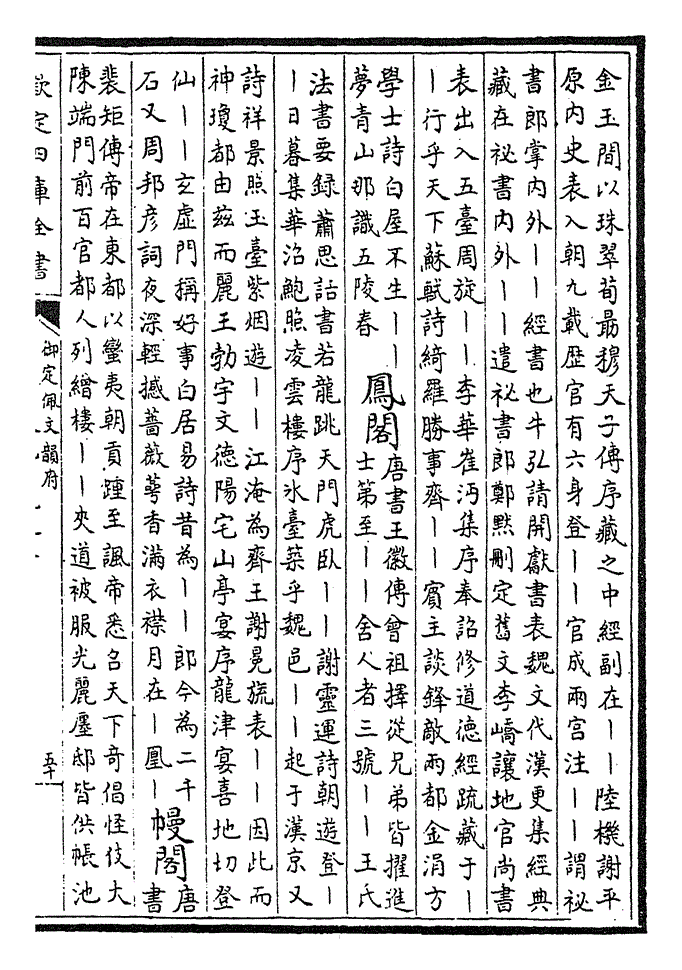 金玉間以珠翠荀勗穆天子傳序藏之中經副在｜｜陸機謝平
原内史表入朝九載歴官有六身登｜｜官成兩宫注｜｜謂祕
書郎掌内外｜｜經書也牛弘請開獻書表魏文代漢更集經典
藏在祕書内外｜｜遣祕書郎鄭黙刪定舊文李嶠讓地官尚書
表出入五臺周旋｜｜李華崔沔集序奉詔修道德經疏藏于｜
｜行乎天下蘇軾詩綺羅勝事齊｜｜賓主談鋒敵兩都金涓方
學士詩白屋不生｜｜
夢青山那識五陵春
鳳閣
唐書王徽傳曾祖擇從兄弟皆擢進
士第至｜｜舍人者三號｜｜王氏
法書要録蕭思話書若龍跳天門虎臥｜｜謝靈運詩朝遊登｜
｜日暮集華沼鮑照凌雲樓序氷臺築乎魏邑｜｜起于漢京又
詩祥景照玉臺紫烟遊｜｜江淹為齊王謝冕旒表｜｜因此而
神瓊都由兹而麗王勃宇文德陽宅山亭宴序龍津宴喜地切登
仙｜｜玄虚門稱好事白居易詩昔為｜｜郎今為二千
石又周邦彦詞夜深輕撼薔薇萼香滿衣襟月在｜凰｜
幔閣
唐
書
裴矩傳帝在東都以蠻夷朝貢踵至諷帝悉召天下奇倡怪伎大
陳端門前百官都人列繒樓｜｜夾道被服光麗廛邸皆供帳池
欽定四庫全書
御定佩文韻府
五十